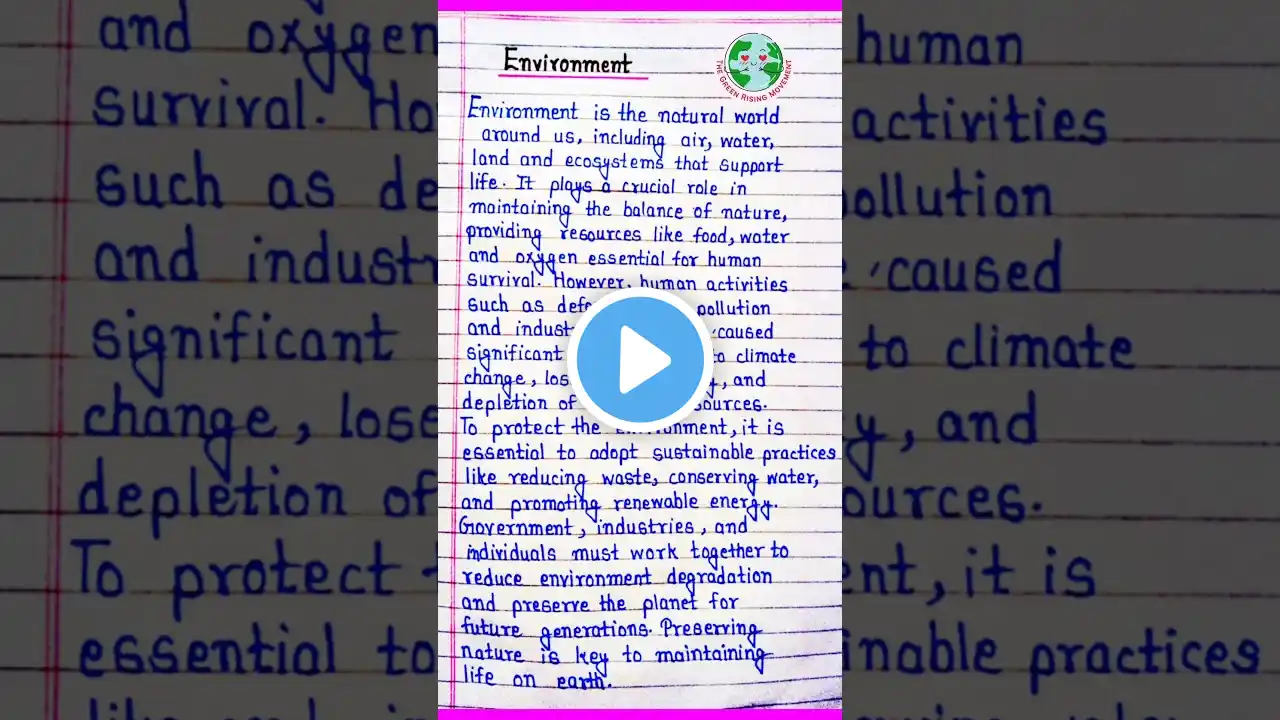 Environment
THE GREEN RISING MOVEMENT
Environment is the natural world
around us, including air, water,
land and ecosystems that support
life. It plays a crucial role in
maintaining the balance of nature,
providing resources like food, water
and oxygen essential for human
survival. However, human activities
such as pollution
and caused
significant to climate
change, and
depletion of
To protect the environment, it is
essential to adopt sustainable practices
like reducing waste, conserving water,
and promoting renewable energy.
Government, industries, and
individuals must work together to
reduce environment degradation
and preserve the planet for
future generations. Preserving
nature is key to maintaining
life on earth.